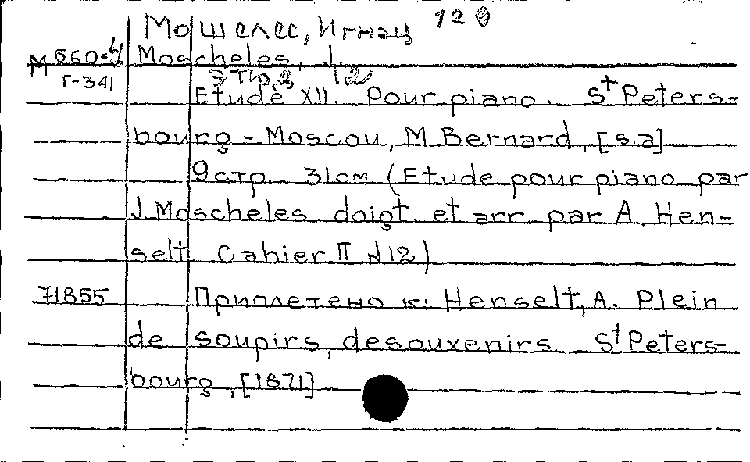 Мошелес, Игнац
M 560-4 Moscheles, I
Г-341
Etude XII. Pour piano. St Peters-
bourg - Moscou, M. Bernard, [s.a]
9стр 31см (Etude pour piano par
J. Moscheles doigt et arr par A. Hen-
selt Cahier II N12)
71855 Приплетено к: Henselt, A. Plein
de soupirs, desouvenirs St Peters-
bourg, [1871]